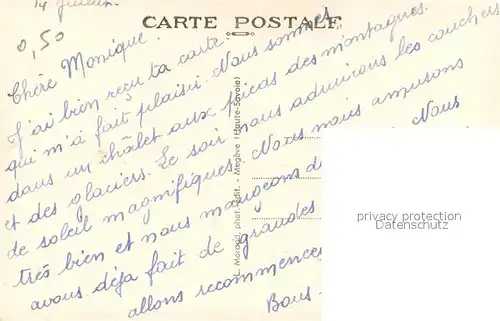 14 Juillet.
CARTE POSTALE
0,50
Chère Monique.
J'ai bien reçu ta carte
qui m'a fait plaisir. Nous sommes
dans un châlet aux pieds des montagnes
et des glaciers. Le soir nous admirons les couchers
de soleil magnifiques. Nous nous amusons
très bien et nous mangeons Nous
avons déja fait de grandes
allons recommencer
Bons
phot. édit. - Megève (Haute-Savoie)
privacy protection
Datenschutz